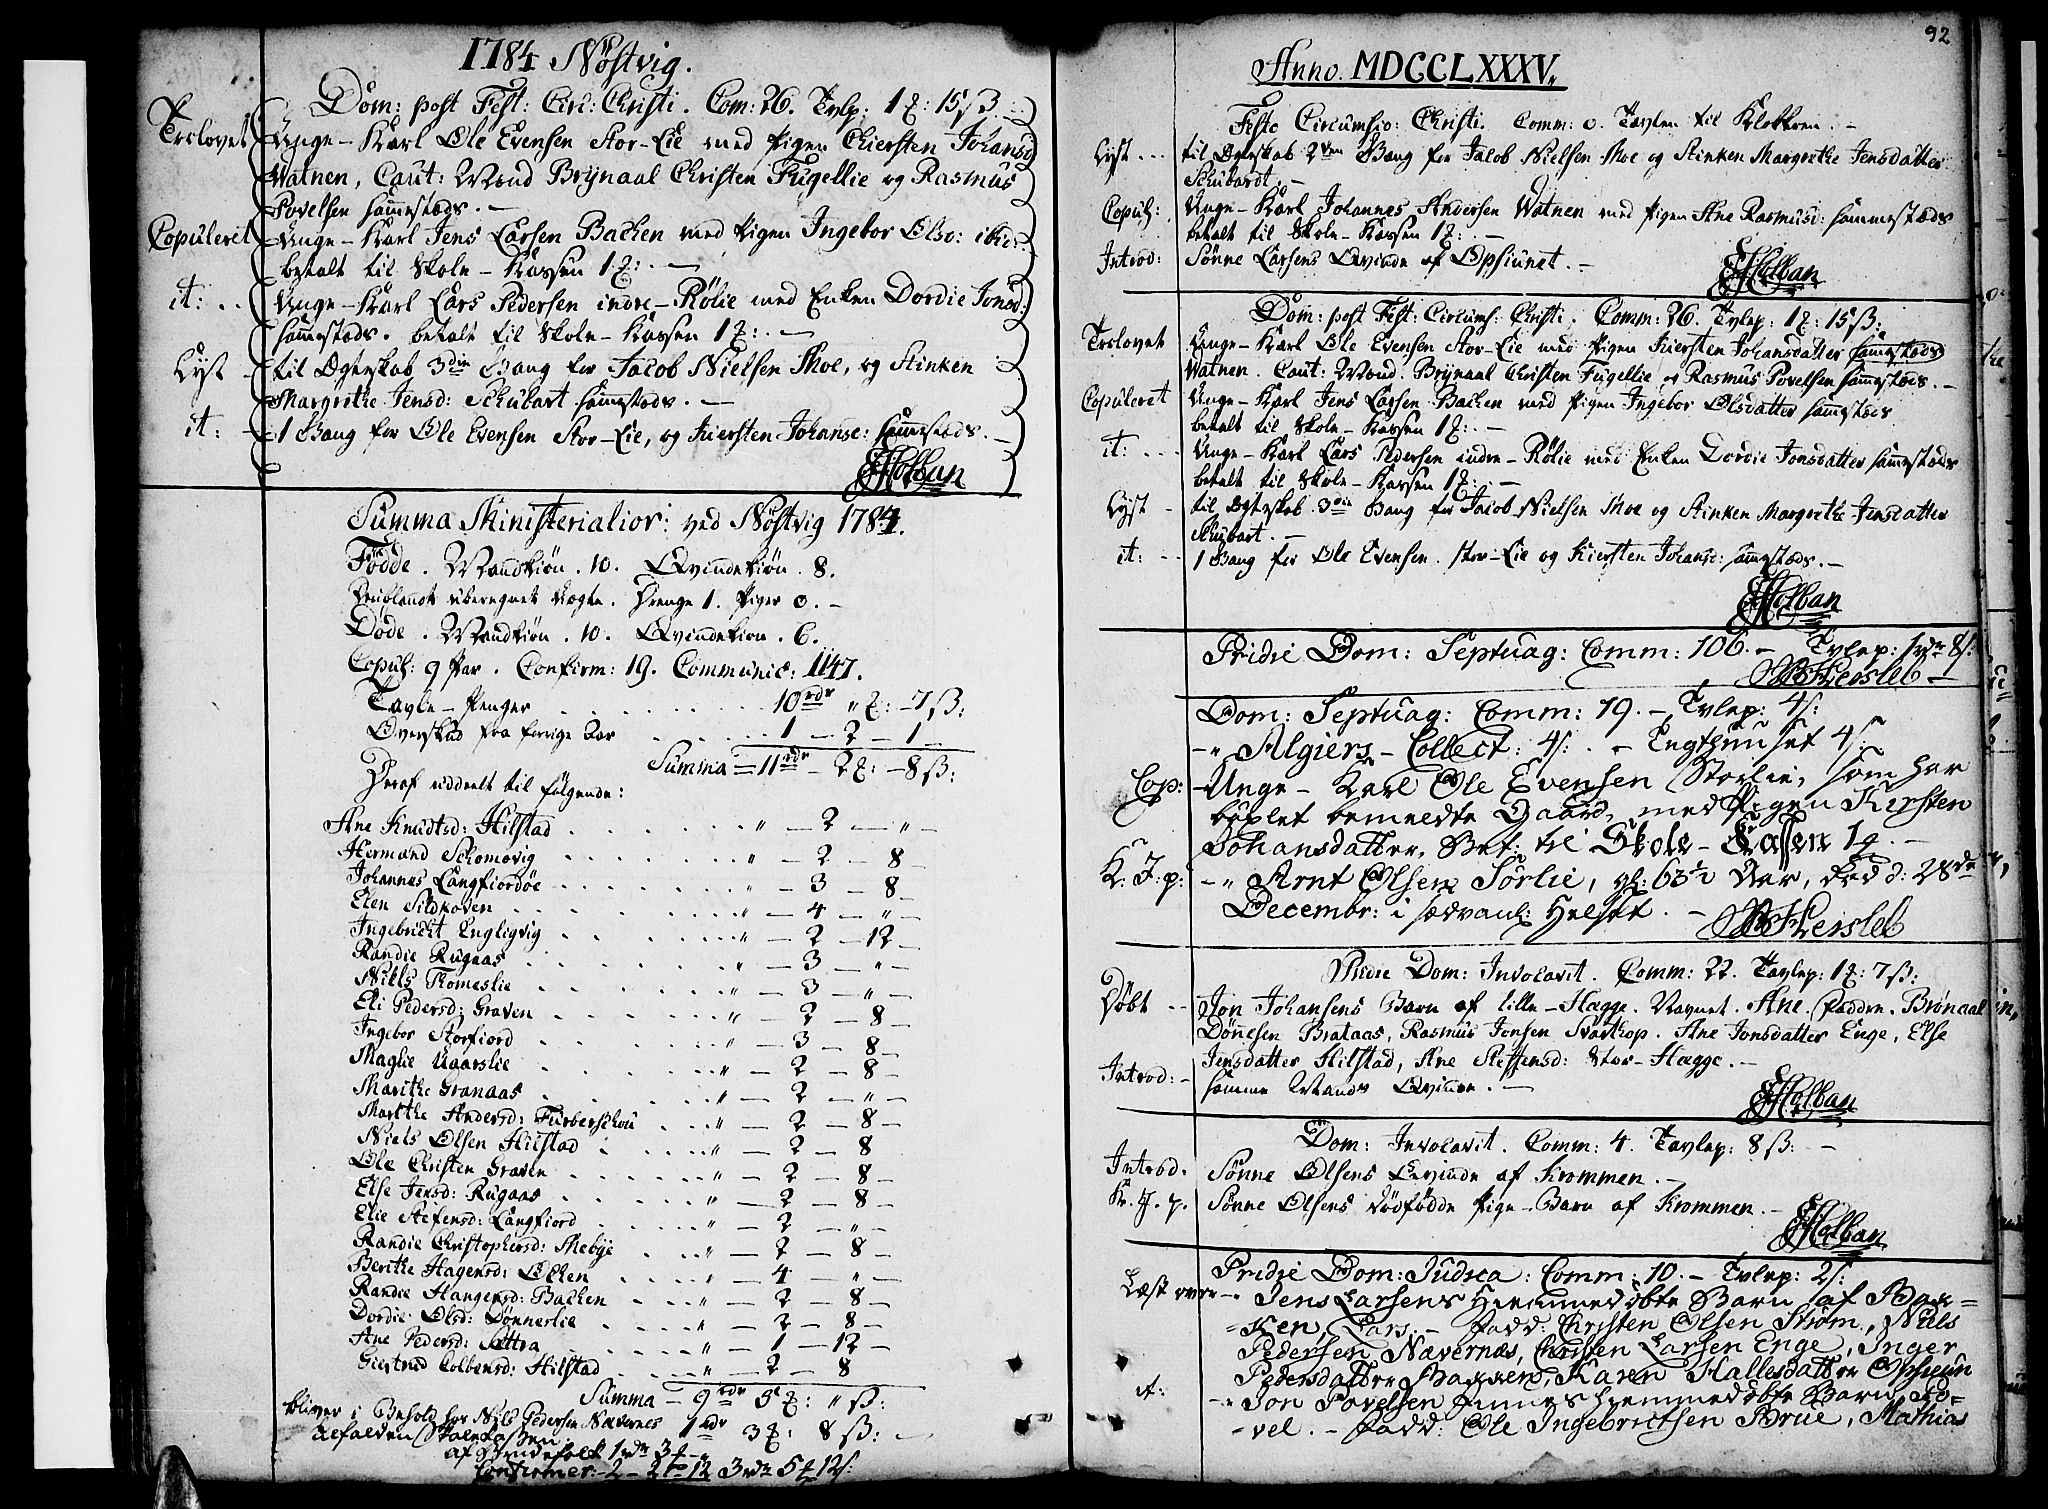 1784 Nöstvig.
Dom: post Fest: Circ: Christi. Com: 26. Tvlp: 1 ₰: 15 ß:
Trolovet Unge-Karl Ole Evensen Stor-Lie med Pigen Chiersten Johansd
Watnen, Caut: Mænd Brÿnaal Christen Fugellie og Rasmus
Povelsen sammestæds. -
Copuleret Unge-Karl Jens Larsen Bachen med Pigen Ingebor Olsd: ibid:
betalt til Skole-Kassen 1 ₰: -
it: .. Unge-Karl Lars Pedersen indre-Rölie med Enken Dordie Jonsd:
sammestæds. betalt til Skole-Kassen 1 ₰: -
Lyst - til Ægteskab 3die Gang for Jacob Nielsen Moe, og Stinken
Margrethe Jensd: Schubart sammestæds. -
it: - 1 Gang for Ole Evensen Stor-Lie, og Kiersten Johansd: sammestæds. -
Holban
Summa Ministerialior: ved Nöstvig 1784.
Födde. Mandkiön. 10. Qvindekiön. 8.
iblandt uberegnet Uægte. Drenge 1. Piger 0. -
Döde. Mandkiön. 10. Qvindekiön. 6.
Copul: 9 Par. Confirm: 19. Communic: 1147.
Tavle-Penger . . . 10 rdr " ₰: - 7 ß:
Overskud fra forrige Aar . . . 1 - 2 - 1 -
Summa = 11 rdr - 2 ₰: - 8 ß:
Deraf uddeelt til fölgende:
Ane Knudtsd: Hilstad . . . " - 2 - " -
Hermand Schomovig . . . " - 2 - 8 -
Johannes Langfiordöe . . . " - 3 - 8 -
Elen Sildhoven . . . " - 4 - " -
Ingebricht Engligvig . . . " - 2 - 12 -
Randie Rugaas . . . " - 3 - " -
Niels Thomeslie . . . " - 3 - " -
Eli Pedersd: Graven . . . " - 2 - 8 -
Ingebor Storfiord . . . " - 3 - 8 -
Maglie Aaarslie . . . " - 2 - 8 -
Marithe Granaas . . . " - 2 - " -
Marthe Andersd: Furberschou . . . " - 2 - 8 -
Niels Olsen Hilstad . . . " - 2 - 8
Ole Christen Graven . . . " - 2 - 8 -
Else Jensd: Rugaas . . . " - 2 - 8 -
Elie Stefensd: Langfiord . . . " - 2 - " -
Randie Christophersd: Mebÿe . . . " - 2 - 8 -
Berithe Hagensd: Ocken . . . " - 4 - " -
Randie Hangensd: Bachen . . . " - 2 - 8 -
Dordie Olsd: Dönneslie . . . " - 2 - 8 -
Ane Pedersd: Sættra . . . " - 1 - 12 -
Giertrud Colbensd: Hilstad . . . " - 2 - 8
Summa - 9 rdr 5 ₰: " ß:
bliver i Behold hos Nils Pedersen Nævernes 1 rdr 3 ₰: 8 ß: -
Skolekassen
1 rdr 3 ₰ - "
Confirmer: - 2 - 2 - 12 3 rdr 5 ₰ 12 ß:
92
Anno. MDCCLXXXV.
Festo Circumsio: Christi. Comm: 0. Tavlen til Klokkren. -
Lyst ... til Ægteskab 2den Gang for Jacob Nielsen Moe og Stinken Margrethe Jensdatter
Schubardt. -
Copul: Unge-Karl Johannes Andersen Watnen med Pigen Ane Rasmusd: sammestæds
betalt til Skole-Kassen 1 ₰: -
Introd: Sönne Larsens Qvinde af Opsiunet. -
Holban
Dom: post Fest: Circums: Christi. Comm: 26. Tvlep: 1 ₰: 15 ß:
Trolovet Unge-Karl Ole Evensen Stor-Lie med Pigen Kiersten Johansdatter sammestæds
Watnen. Caut: Mænd. Brÿnaal Christen Fugellie og Rasmus Povelsen sammestæds. -
Copuleret Unge-Karl Jens Larsen Bachen med Pigen Ingebor Olsdatter sammestæds
betalt til Skole-Kassen 1 ₰: -
it: ... Unge-Karl Lars Pedersen indre-Rölie med Enken Dordie Jonsdatter sammestæds
betalt til Skole-Kassen 1 ₰: -
Lyst - til Ægteskab 3die Gang for Jacob Nielsen Moe og Stinken Margrethe Jensdatter
Schubart. -
it: - 1 Gang for Ole Evensen Stor-Lie og Kiersten Johansd: sammestæds. -
Holban
Pridie Dom: Septuag: Comm: 106. - Tvlep: 1 rdr 8 ß:
Hersleb
Dom: Septuag: Comm: 19. - Tvlep: 4 ß:
-" Algiers-Collect: 4 ß: . - Tugthuuset 4 ß:
Cop: Unge-Karl Ole Evensen Storlie, som har
büxlet bemeldte Gaard, med Pigen Kirsten
Johansdatter, Bet: til Skole-Cassen 1 ₰. -
K. J. p: -" Arnt Olsen Sörlie, gl: 63½ Aar, död d: 28de
Decembr: i sædvanl: Helset. -
Hersleb
Pridie Dom: Invocavit. Comm: 22. Tavlep: 1 ₰: 7 ß:
Döbt .. Jon Johansens Barn af lille-Hægge. Navnet. Ane. Faddre. Brönaal
Dönnesen Brataas, Rasmus Jonsen Svarthop. Ane Jonsdatter Enge, Else
Jensdatter Hilstad, Ane Steffensd: Stor-Hægge. -
Introd: - samme Mands Qvinde. -
Holban
Dom: Invocavit. Comm: 4. Tavlep: 8 ß: -
Introd: Sönne Olsens Qvinde af Krommen. -
K. J. p. Sönne Olsens dödfödde Pige-Barn af Krommen. -
Holban
Pridie Dom: Judica: Comm: 10. - Tvlep: 2 ß:
Læst over -" Jens Larsens Hiemmedöbte Barn af Bak=
=ken, Lars. - Fadd: Christen Olsen Strøm, Niels
Pedersen Nævernæs, Christen Larsen Enge, Inger
Pedersdatter Bakken, Karen Hallesdatter Opsjun
it: -" Jon Povelsen Finnes hiemmedöbte Barn, Po=
=vel. - Fadd: Ole Ingebrictsen Brue, Mathias